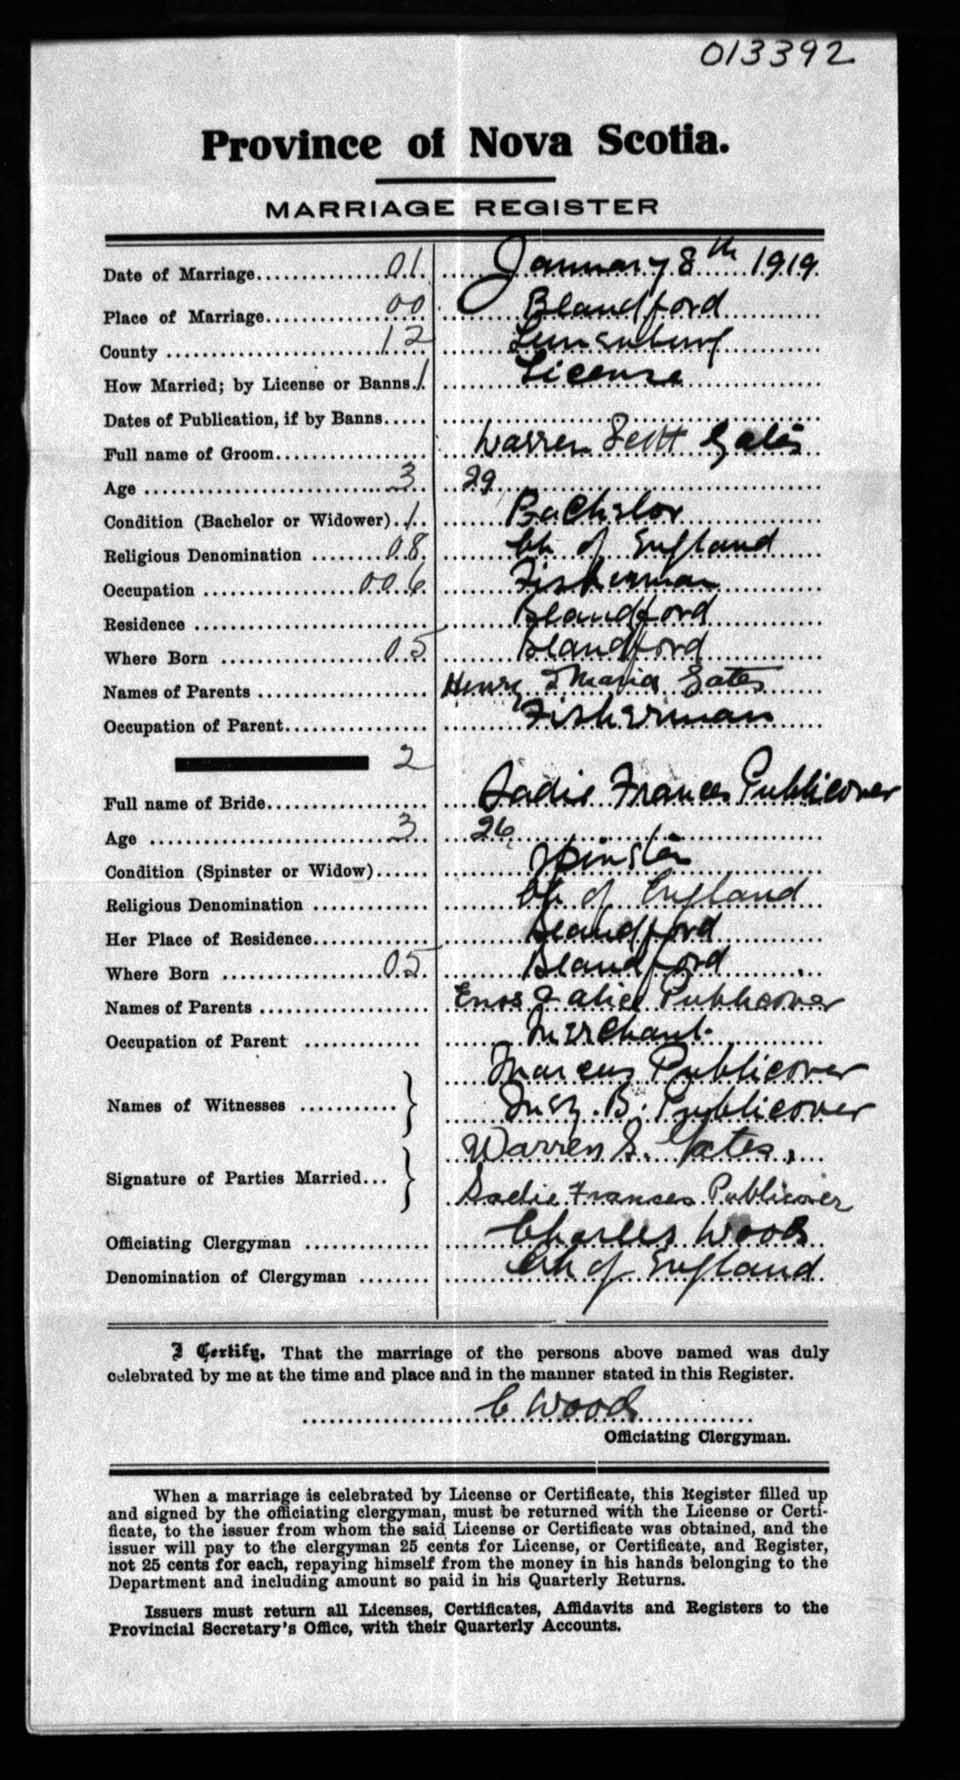 013392
Province of Nova Scotia.
MARRIAGE REGISTER
Date of Marriage 01 January 8th 1919
Place of Marriage 00 Blandford
County 12 Lunenburg
How Married; by License or Banns. 1 License
Dates of Publication, if by Banns
Full name of Groom Warren Scott Gates
Age 3 29
Condition (Bachelor or Widower) 1 Bachelor
Religious Denomination 08 Ch of England
Occupation 006 Fisherman
Residence Blandford
Where Born 05 Blandford
Names of Parents Henry & Maria Gates
Occupation of Parent Fisherman
2
Full name of Bride Sadie Frances Publicover
Age 3 26
Condition (Spinster or Widow) Spinster
Religious Denomination Ch of England
Her Place of Residence Blandford
Where Born 05 Blandford
Names of Parents Enos & Alice Publicover
Occupation of Parent Merchant
Marcus Publicover
Names of Witnesses B. Publicover
Warren S. Gates.
Signature of Parties Married Sadie Frances Publicover
Officiating Clergyman Charles Wood
Denomination of Clergyman Ch of England
I Certify, That the marriage of the persons above named was duly
celebrated by me at the time and place and in the manner stated in this Register.
C Wood
Officiating Clergyman.
When a marriage is celebrated by License or Certificate, this Register filled up
and signed by the officiating clergyman, must be returned with the License or Certi-
ficate, to the issuer from whom the said License or Certificate was obtained, and the
issuer will pay to the clergyman 25 cents for License, or Certificate, and Register,
not 25 cents for each, repaying himself from the money in his hands belonging to the
Department and including amount so paid in his Quarterly Returns.
Issuers must return all Licenses, Certificates, Affidavits and Registers to the
Provincial Secretary's Office, with their Quarterly Accounts.